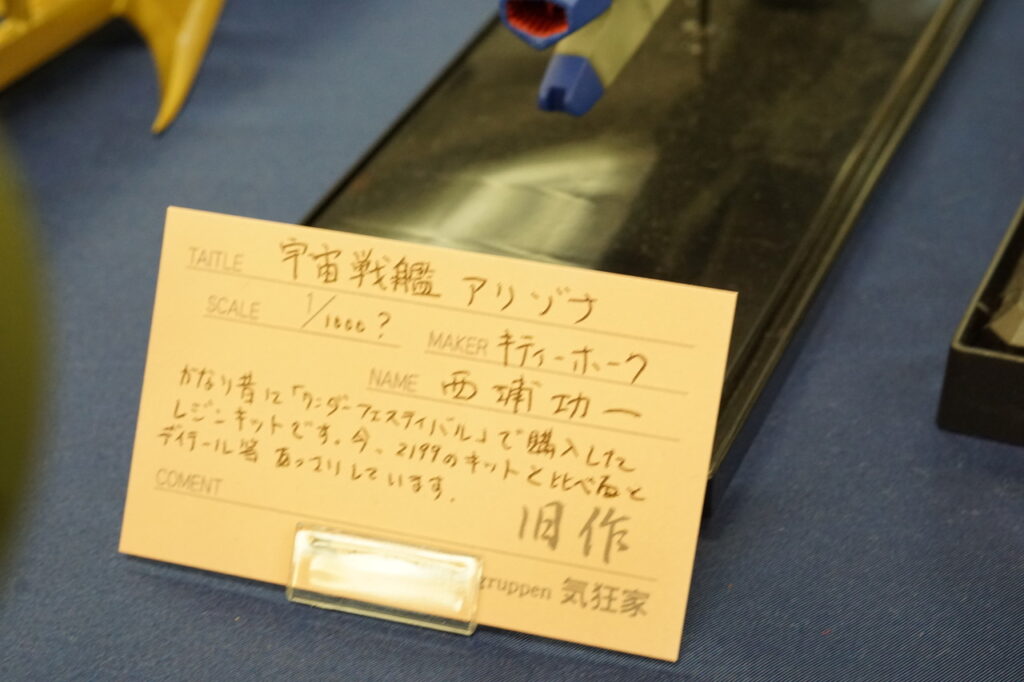 TAITLE 宇宙戦艦 アリゾナ
SCALE 1/1000?
MAKER キティーホーク
NAME 西浦功一
かなり昔に「ワンダーフェスティバル」で購入した
レジンキットです。今、2199のキットと比べると
ディテール等 あっさりしています。
COMENT
旧作
gruppen 気狂家